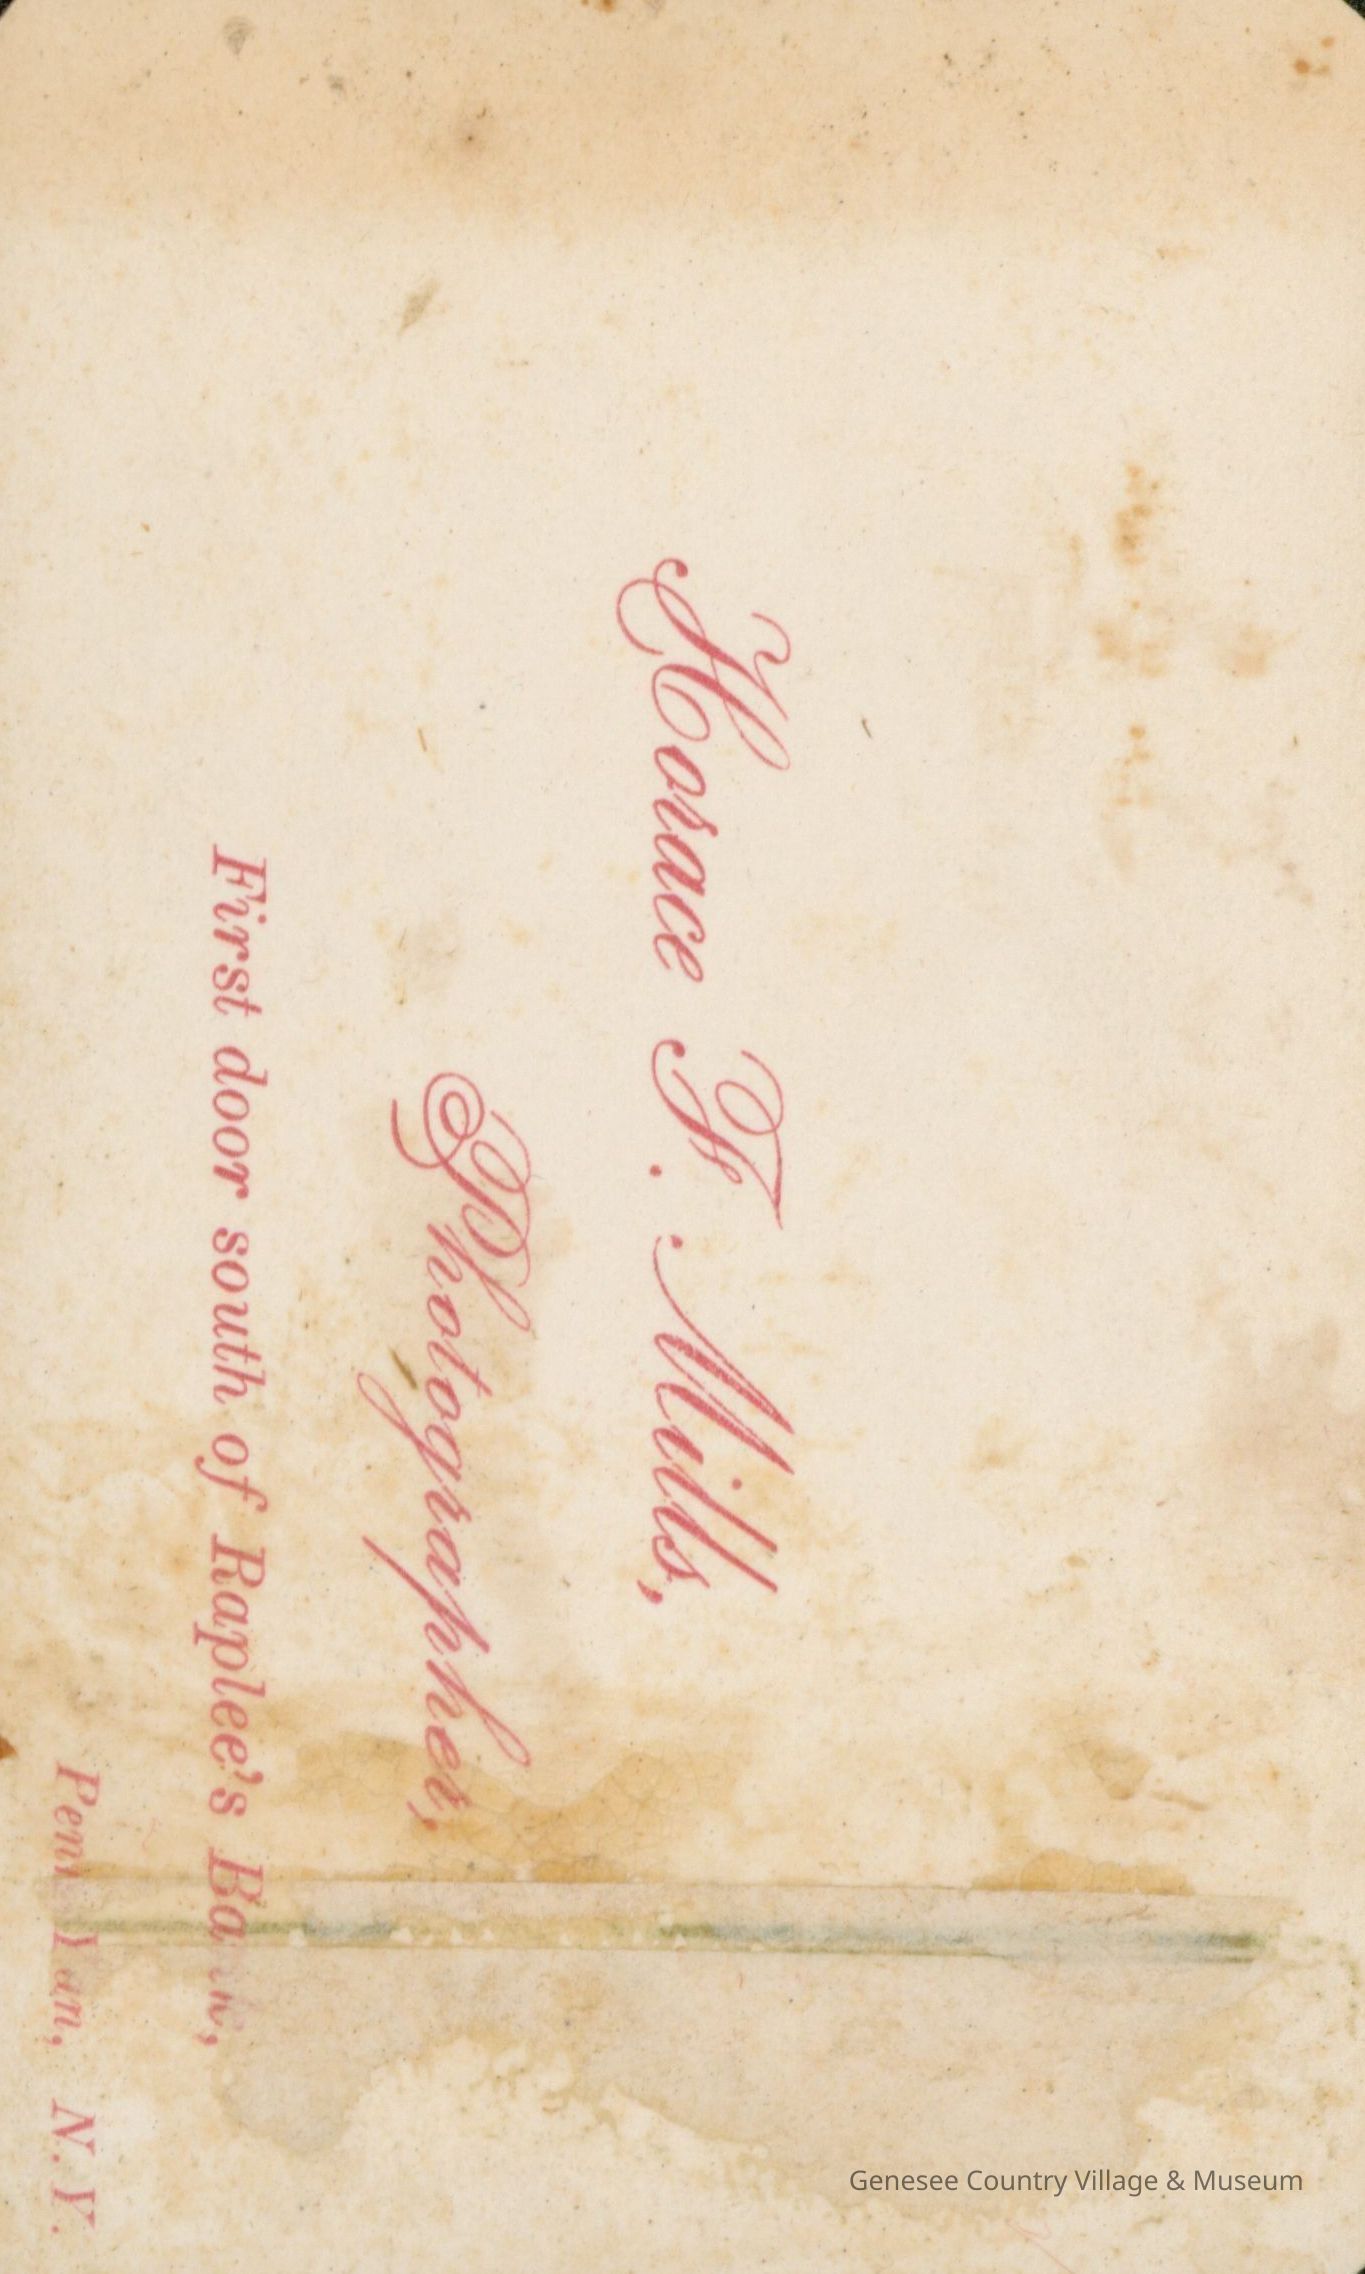 Horace F. Mills,
Photographer,
First door south of Raplee's Bank,
Penn Yan, N. Y.
Genesee Country Village & Museum